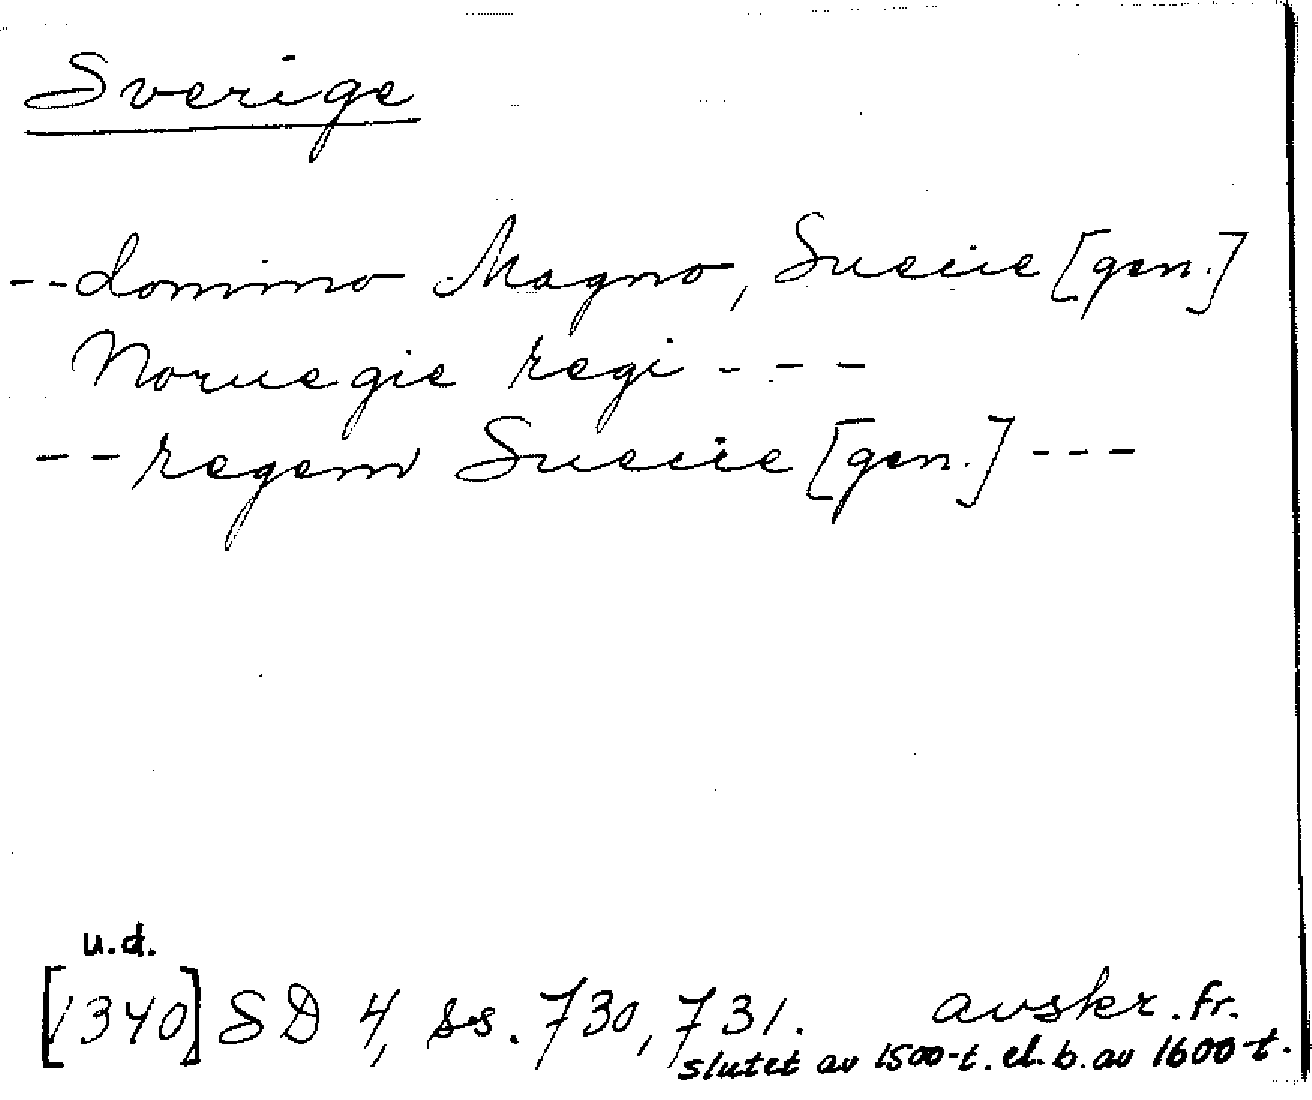 Sverige
--domino Magno, Sueciie [gen.]
Noruegie regi - - - -
--regem Sueciie [gen.] ---
u.d.
[1340] SD 4, ss. 730, 731. avskr. fr.
slutet av 1500-t. el. b. av 1600-t.